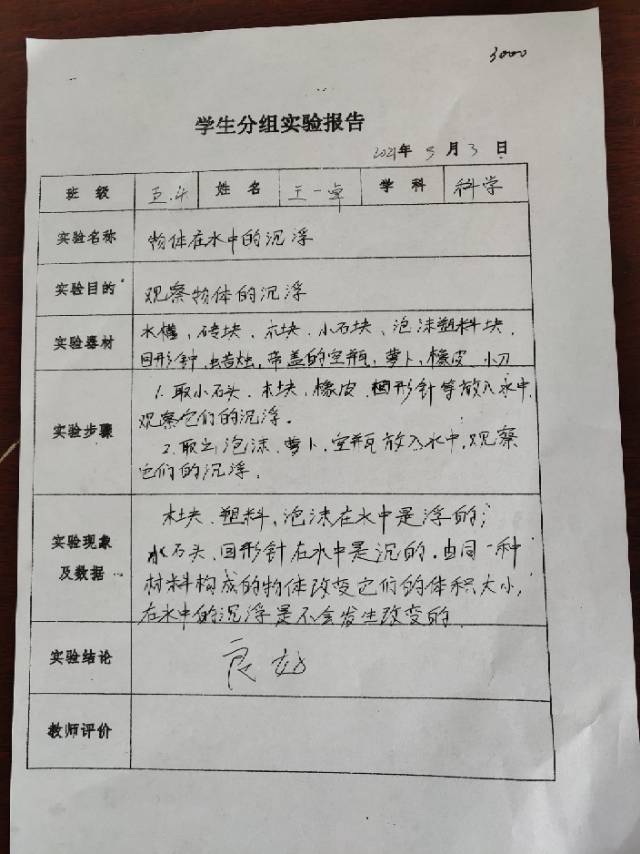 3000
学生分组实验报告
2021年 3 月 3 日
班 级 姓 名 王一卓 学 科 科学
实验名称 物体在水中的沉浮
实验目的 观察物体的沉浮
实验器材 水槽、砖块、木块、小石块、泡沫塑料块、
回形针、蜡烛、带盖的空瓶、萝卜、橡皮、小刀
实验步骤 1. 取小石头、木块、橡皮、回形针等放入水中,
观察它们的沉浮。
2. 取出泡沫、萝卜、空瓶放入水中,观察
它们的沉浮。
实验现象及数据 木块、塑料、泡沫在水中是浮的;
小石头、回形针在水中是沉的。由同一种
材料构成的物体改变它们的体积大小,
在水中的沉浮是不会发生改变的。
实验结论 良好
教师评价